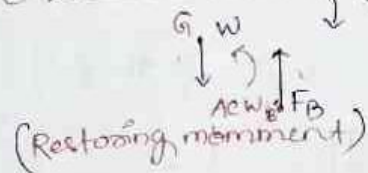 G W
ACW B FB
(Restoring momment)